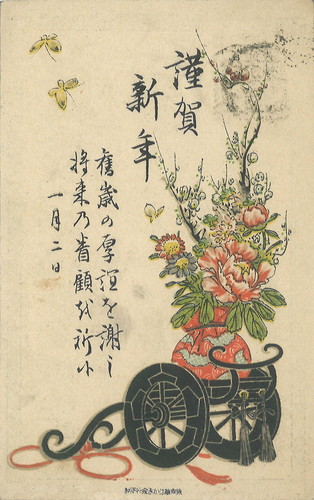 謹賀
新年
舊歳の厚誼を謝し
将来乃眷顧を祈小
一月二日